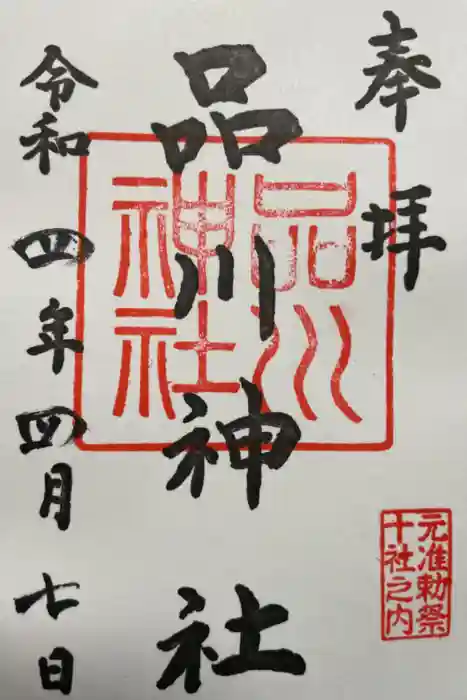 奉拝
品川神社
品川
神社
令和四年四月七日
元准勅祭
十社之内